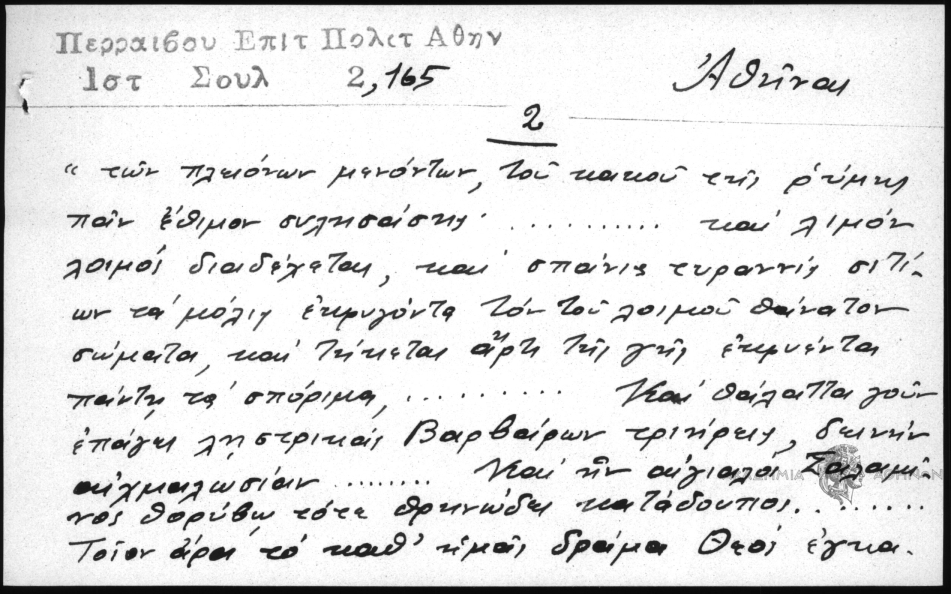 Περραιβου Επιτ Πολιτ Αθην
1στ Σουλ 2,165 Ἀθῆναι
2
" τῶν πλειόνων μενόντων, τοῦ κακοῦ τῆς ῥύμης
πᾶν ἔθιμον συλησάσης· .......... καί λιμόν
λοιμοί διαδέχεται, καί σπάνις τυραννίς σιτί-
ων τά μόλις ἐκφυγόντα τόν τοῦ λοιμοῦ θάνατον
σώματα, καί τήκεται ἄρτι τῆς γῆς ἐκφυέντα
πάντῃ τά σπόριμα, .......... Καί θάλαττα γοῦν
ἐπάγει λῃστρικάς Βαρβάρων τριήρεις, δεινήν
αἰχμαλωσίαν ........ Καί ἦν αἰγιαλός Σαλαμῖ-
νος θορύβῳ τότε θρηνώδει κατάδουπος.........
Τοῖον ἄρα τό καθ' ἡμᾶς δρᾶμα Θεοί ἔγκα-